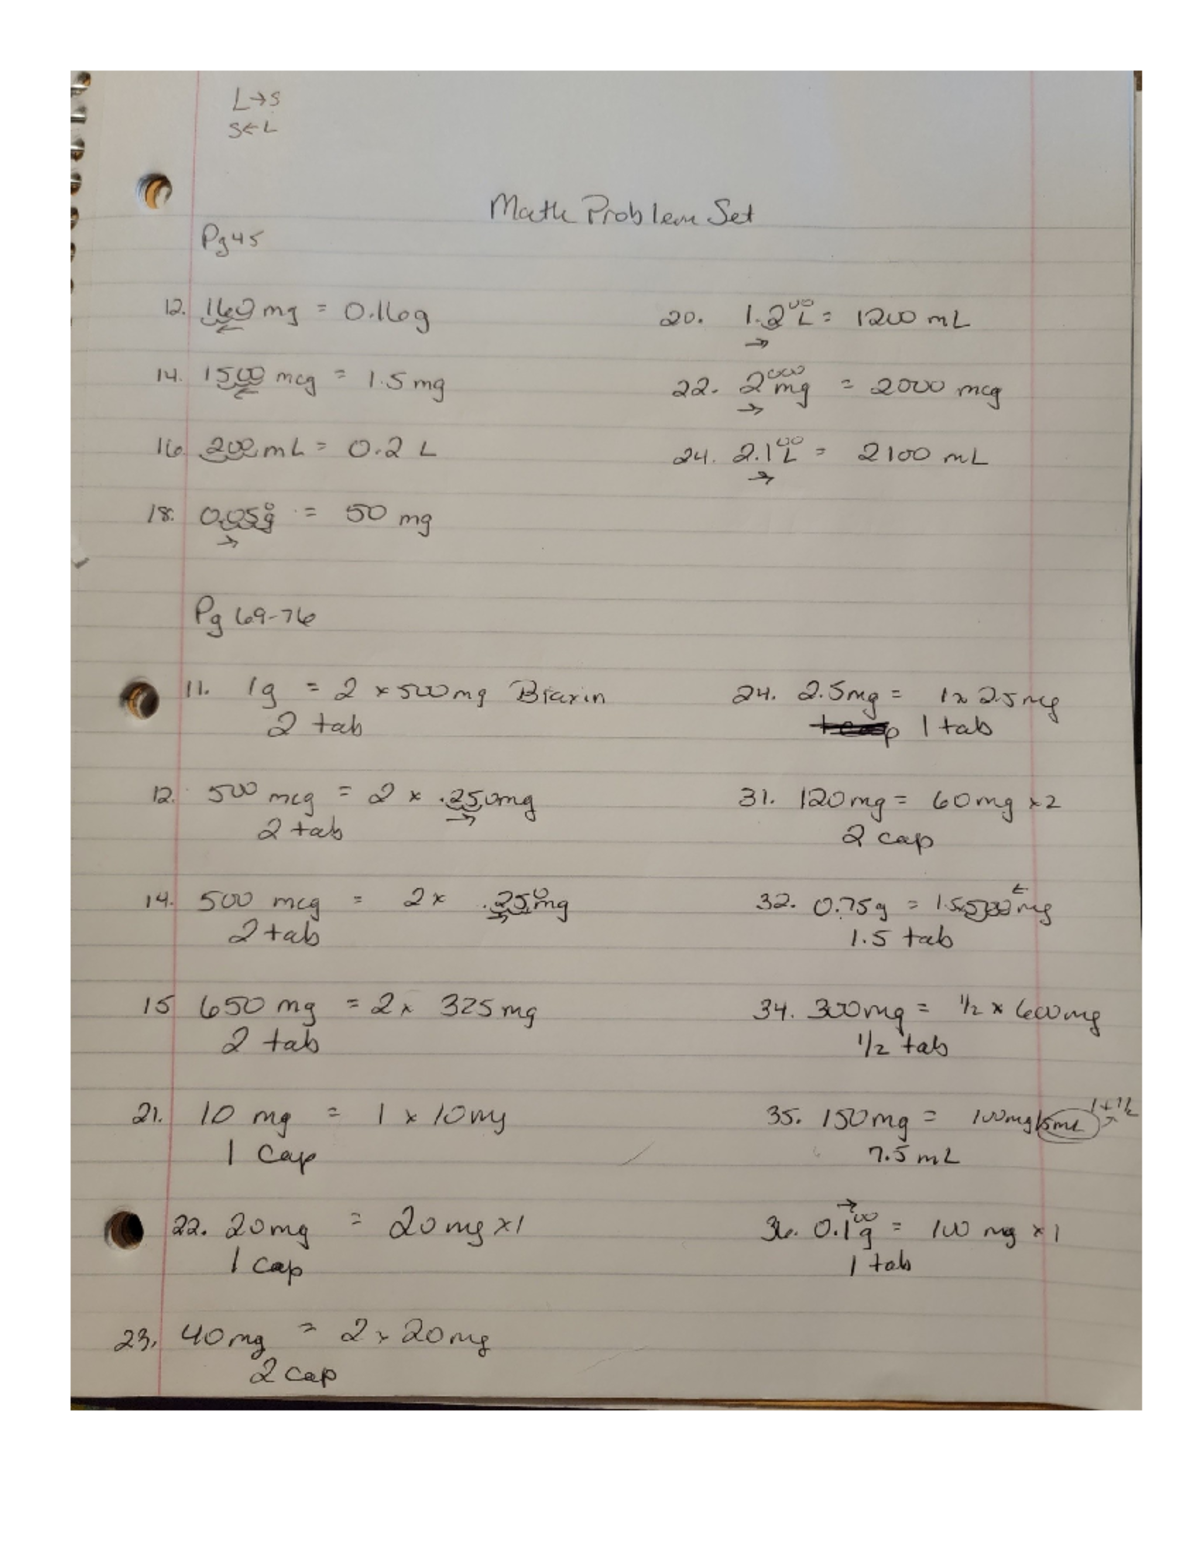 L→S
S←L
Math Problem Set
Pg 45
12. 160 mg = 0.16g
14. 1500 mcg = 1.5 mg
16. 200 mL = 0.2 L
18. 0.05g = 50 mg
20. 1.2L = 1200 mL
22. 2mg = 2000 mcg
24. 2.1L = 2100 mL
Pg 69-76
11. 1g = 2 x 500mg Biaxin
2 tab
12. 500 mcg = 2 x .250mg
2 tab
14. 500 mcg = 2x .250mg
2 tab
15 650 mg = 2x 325mg
2 tab
21. 10 mg = 1 x 10mg
1 cap
22. 20mg = 20mg x1
1 cap
23. 40mg = 2x 20mg
2 cap
24. 2.5mg = 1x 2.5mg
1 tab
31. 120mg = 60mg x2
2 cap
32. 0.75g = 1.5x500mg
1.5 tab
34. 300mg = 1/2 x 600mg
1/2 tab
35. 150mg = 100mg/5mL 1+1/2
7.5 mL
36. 0.1g = 100 mg x1
1 tab